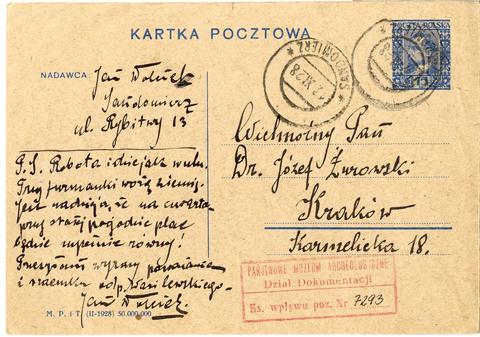 KARTKA POCZTOWA
POCZTA POLSKA
SANDOMIERZ
12.XI.28
NADAWCA
Jan
Sandomierz
ul. Rybitwy 13
P.S. Robota idzie jak w ulu.
Trzy furmanki wożą ziemię.
Jest nadzieja, że na czwartek
przy stałej pogodzie plac
będzie zupełnie równy!
Przesyłam wyrazy poważania
i szacunku od p.
Jan
Wielmożny Pan
Dr. Józef Żurowski
Kraków
Karmelicka 18.
PAŃSTWOWE MUZEUM ARCHEOLOGICZNE
Dział Dokumentacji
Ks. wpływu poz. Nr 7293
M. P. i T. (II-1928) 50.000.000